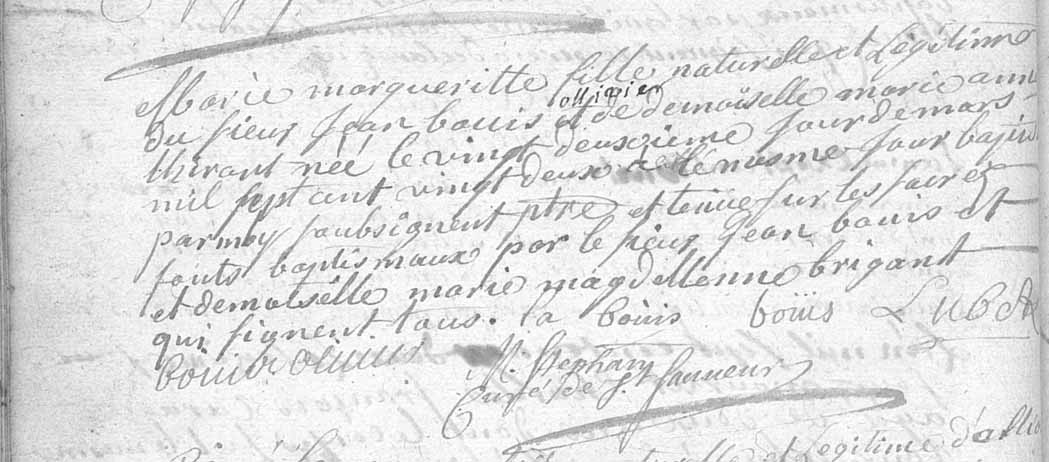 Marie margueritte fille naturelle et Legitime
du sieur Jean bouis ollivier et de demoiselle marie ann
thirant née le vingt deuxieme jour de mars
mil sept cent vingt deux a le mesme jour baptis
par moy soubsignent ptre et tenüe sur les sacrez
fonts baptismaux par le sieur Jean bouis et
et demoiselle marie magdellenne brigant
qui signent tous. a bouis boüis
bouis
M. Stephany
Curé de St. Sauveur
naturelle et Legitime